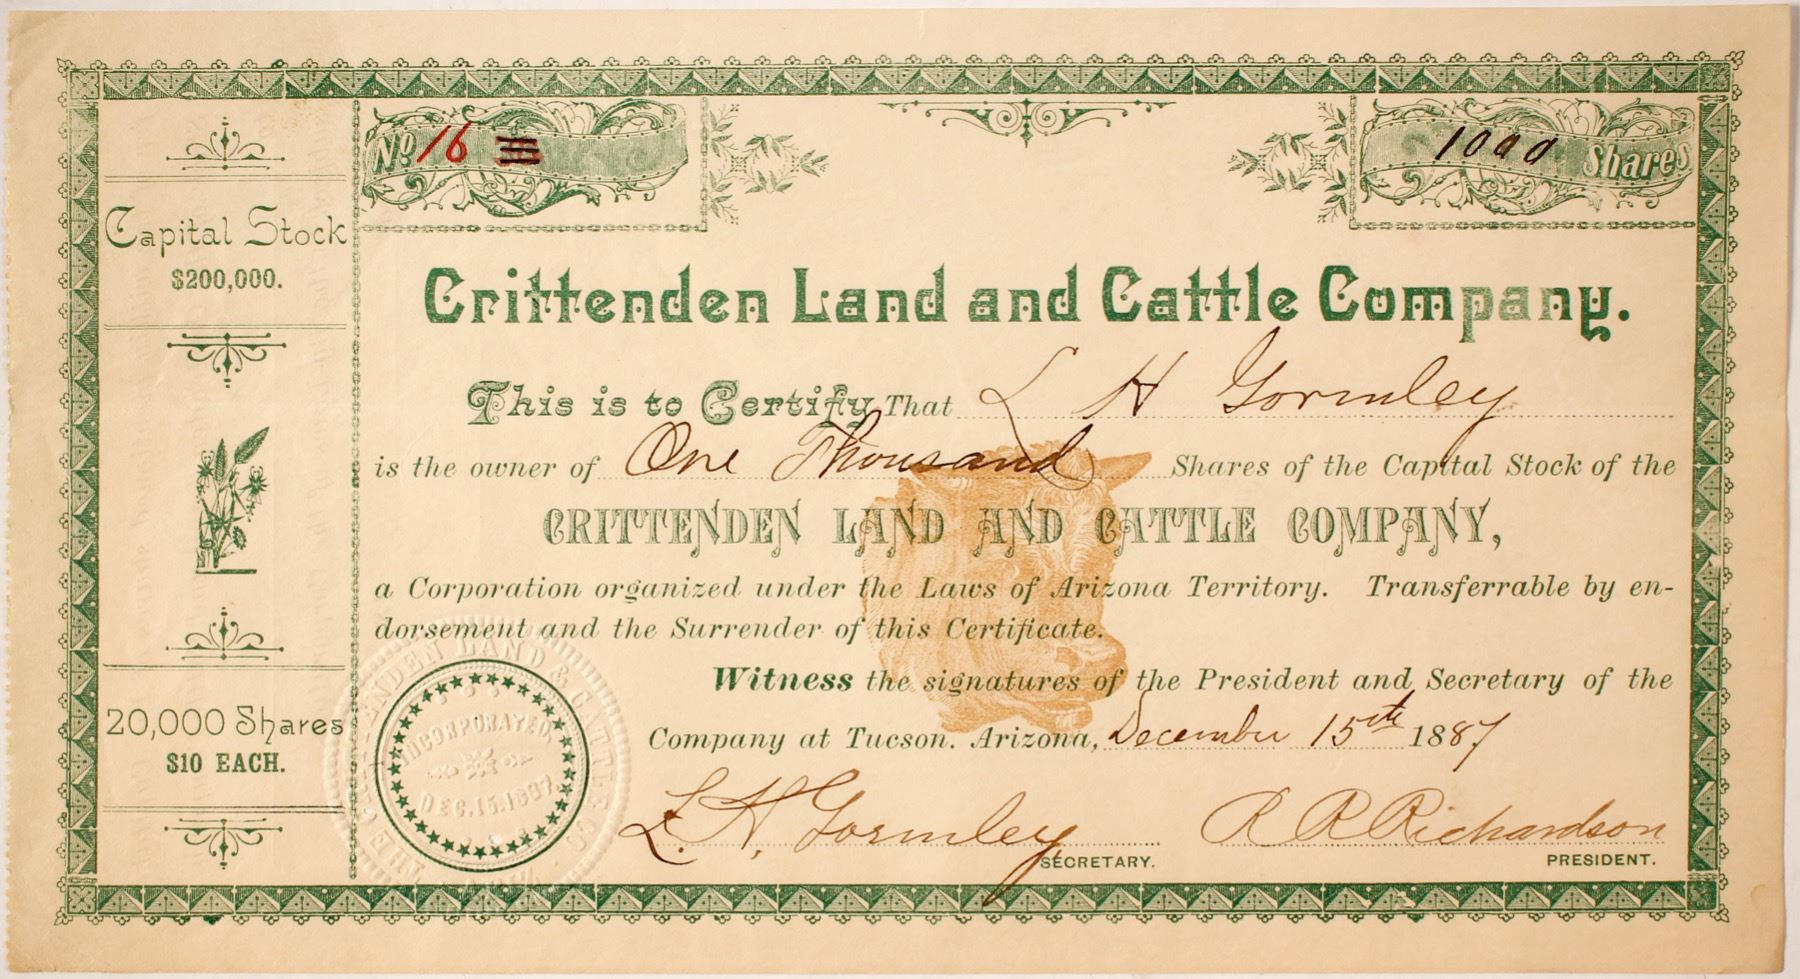 No. 16
1000 Shares
Capital Stock
$200,000.
20,000 Shares
$10 EACH.
Crittenden Land and Cattle Company.
This is to Certify That L H Gormley
is the owner of One Thousand Shares of the Capital Stock of the
CRITTENDEN LAND AND CATTLE COMPANY,
a Corporation organized under the Laws of Arizona Territory. Transferrable by en-
dorsement and the Surrender of this Certificate.
Witness the signatures of the President and Secretary of the
Company at Tucson. Arizona, December 15th 1887
L. H. Gormley
SECRETARY.
R R Richardson
PRESIDENT.
THE CRITTENDEN LAND & CATTLE CO.
INCORPORATED
DEC. 15. 1887.